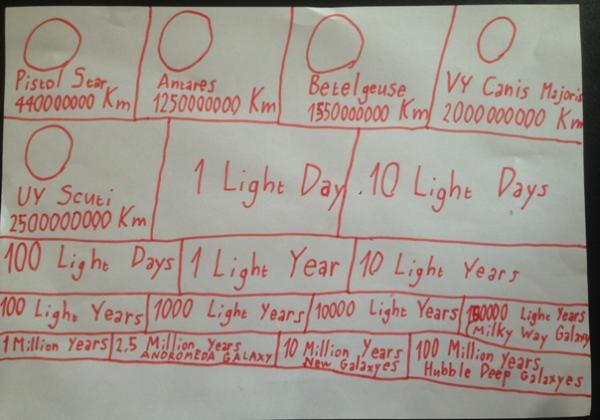 Pistol Star
440000000 Km
Antares
1250000000 Km
Betelgeuse
1550000000 Km
VY Canis Majoris
2000000000 Km
UY Scuti
2500000000 Km
1 Light Day
10 Light Days
100 Light Days
1 Light Year
10 Light Years
100 Light Years
1000 Light Years
10000 Light Years
Light Years
Milky Way Galaxy
1 Million Years
2.5 Million Years
ANDROMEDA GALAXY
10 Million Years
New Galaxyes
100 Million Years
Hubble Deep Galaxyes